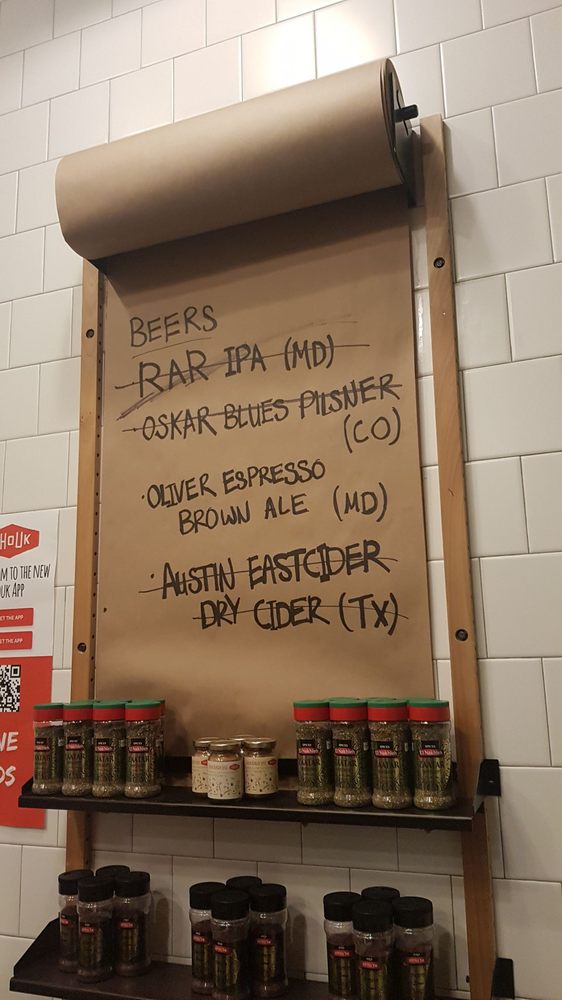 BEERS
RAR IPA (MD)
· OSKAR BLUES PILSNER
(CO)
· OLIVER ESPRESSO
BROWN ALE (MD)
· AUSTIN EASTCIDER
DRY CIDER (TX)
HOUK
M TO THE NEW
OUK APP
ET THE APP
ET THE APP
NE
DS